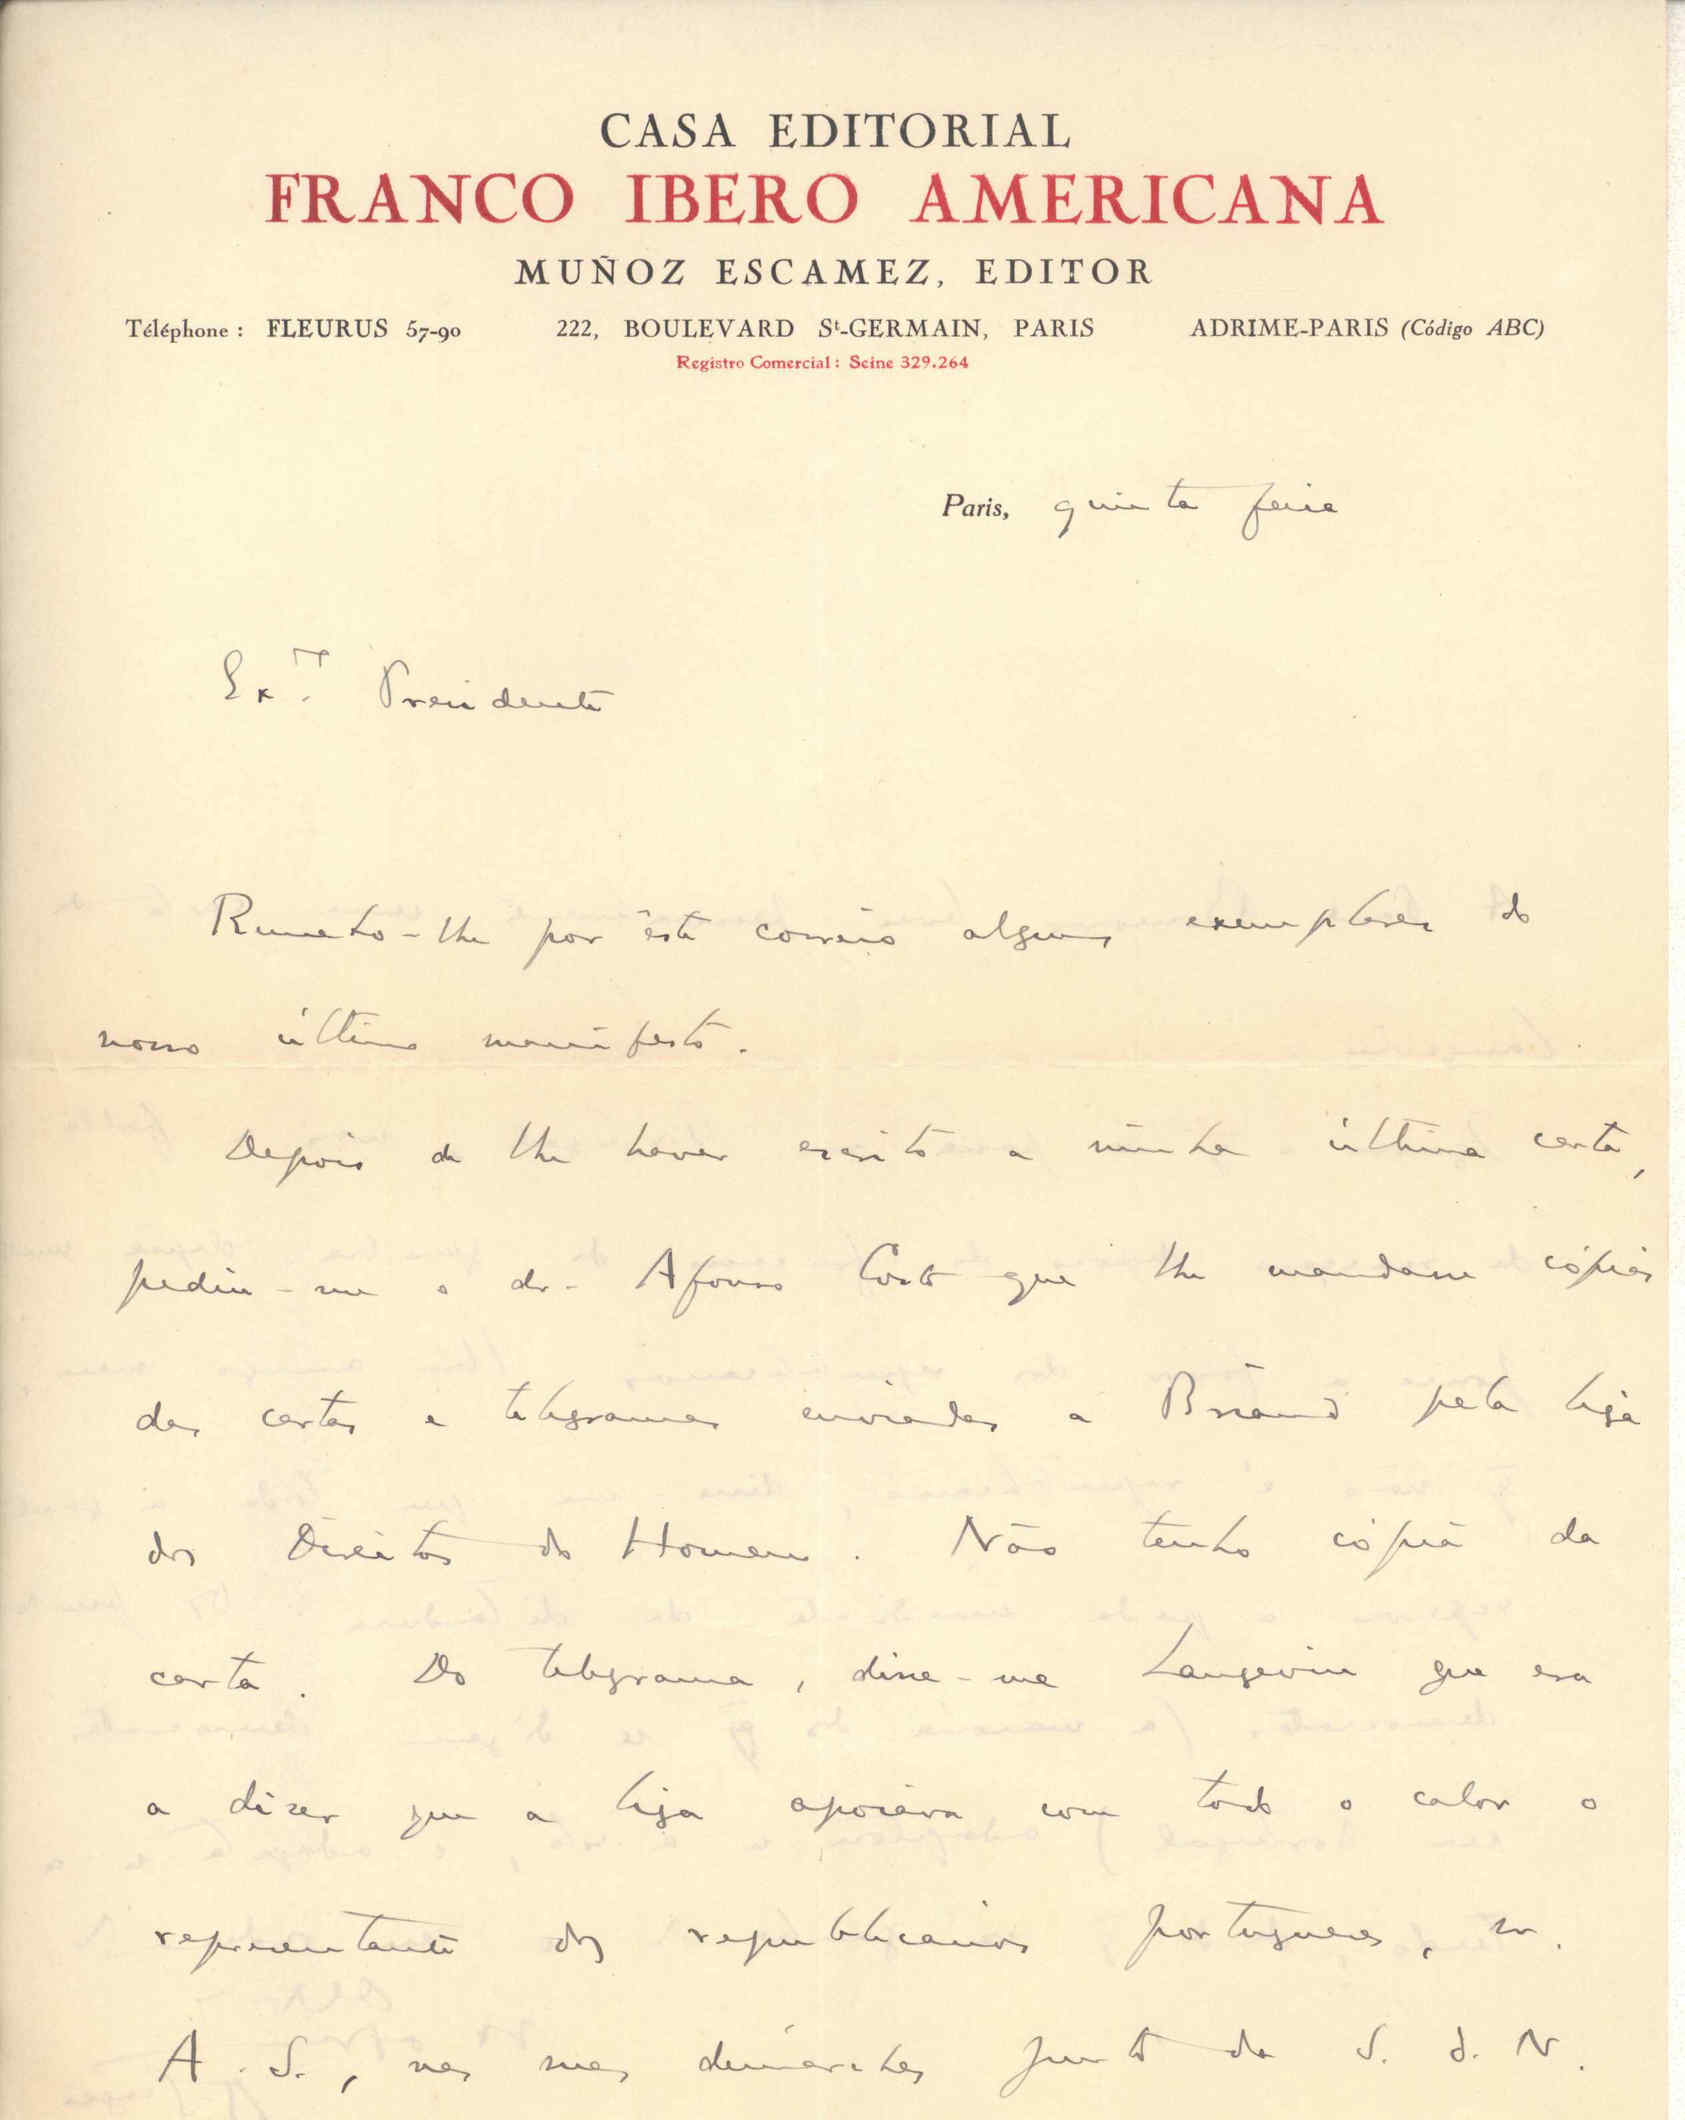 CASA EDITORIAL
FRANCO IBERO AMERICANA
MUÑOZ ESCAMEZ, EDITOR
Téléphone : FLEURUS 57-90 222, BOULEVARD St-GERMAIN, PARIS ADRIME-PARIS (Código ABC)
Registro Comercial : Seine 329.264
Paris, quinta feira
Ex.mo Presidente
Remeto-lhe por êste correio alguns exemplares do
nosso último manifesto.
Depois de lhe haver escrito a minha última carta,
pediu-me o dr. Afonso Costa que lhe mandasse cópias
das cartas e telegramas enviadas a Briand pela Liga
dos Direitos do Homem. Não tenho cópia da
carta. Do telegrama, disse-me Langevin que era
a dizer que a Liga apoiava com todo o calor o
representante dos republicanos portugueses, sr.
A. S., nas suas démarches junto da S. d. N.